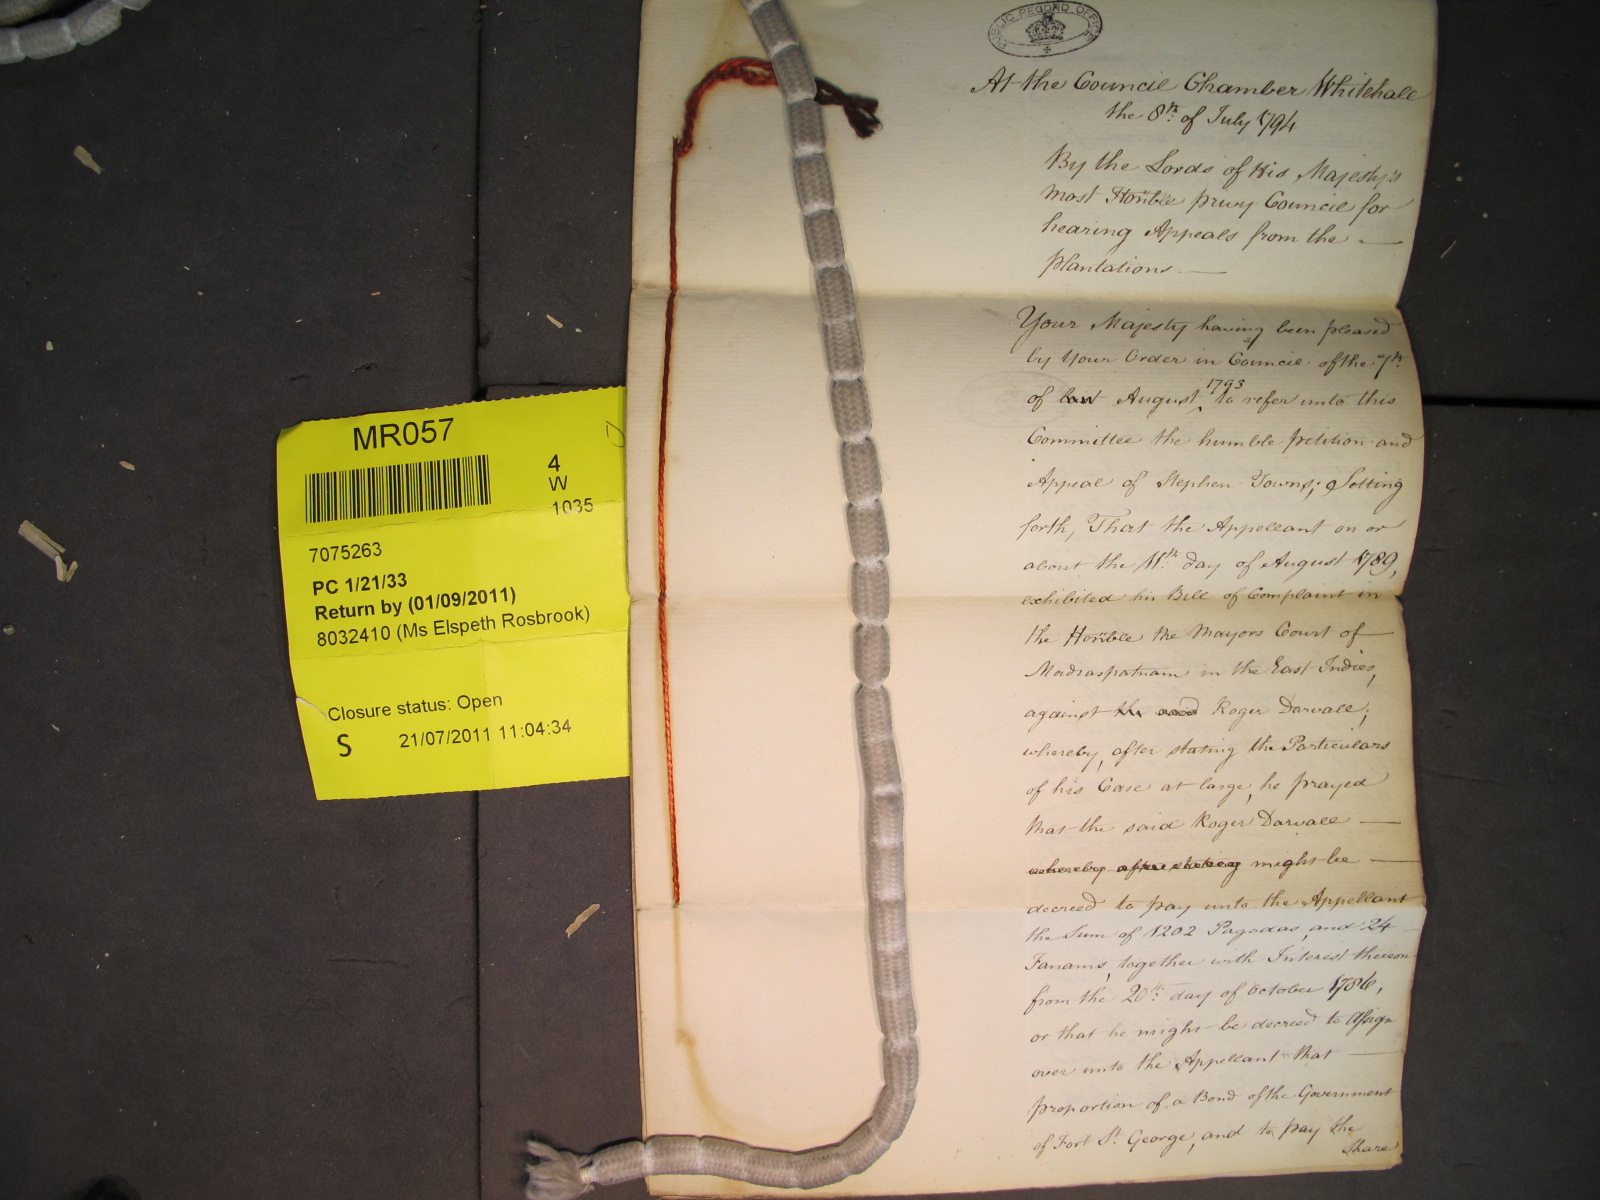 PUBLIC RECORD OFFICE
At the Council Chamber Whitehall
the 8th. of July 1794
By the Lords of His Majesty's
most Honble privy Council for
hearing Appeals from the —
plantations —
Your Majesty having been pleased
by Your Order in Council of the 7th.
of last August, 1793 to refer unto this
Committee the humble petition and
Appeal of Stephen Towns; Setting
forth, That the Appellant on or
about the 11th. day of August 1789,
exhibited his Bill of Complaint in
the Honble the Mayors Court of —
Madraspatnam in the East Indies,
against the said Roger Darvall;
whereby, after stating the Particulars
of his Case at large, he prayed
that the said Roger Darvall —
whereby after stating might be —
decreed to pay unto the Appellant
the Sum of 1202 Pagodas, and 24
Fanams, together with Interest thereon
from the 20th. day of October 1786,
or that he might be decreed to Assign
over unto the Appellant that —
proportion of a Bond of the Government
of Fort St. George, and to pay the
Share
MR057
4
W
1035
7075263
PC 1/21/33
Return by (01/09/2011)
8032410 (Ms Elspeth Rosbrook)
Closure status: Open
S 21/07/2011 11:04:34